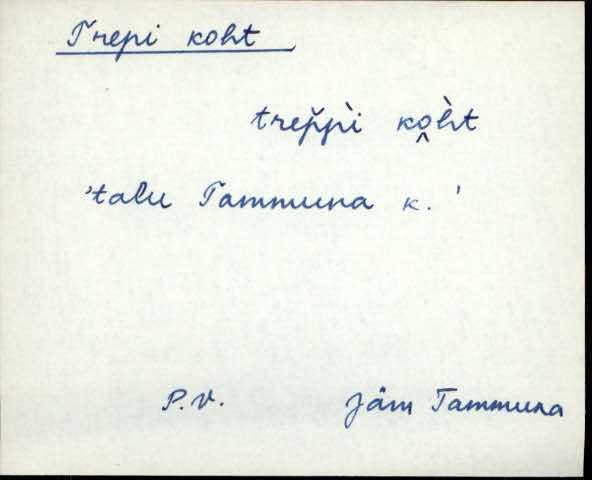 Trepi koht
trep̆p̀i ko̭h̀t
'talu Tammuna k.'
P.V. Jäm Tammuna